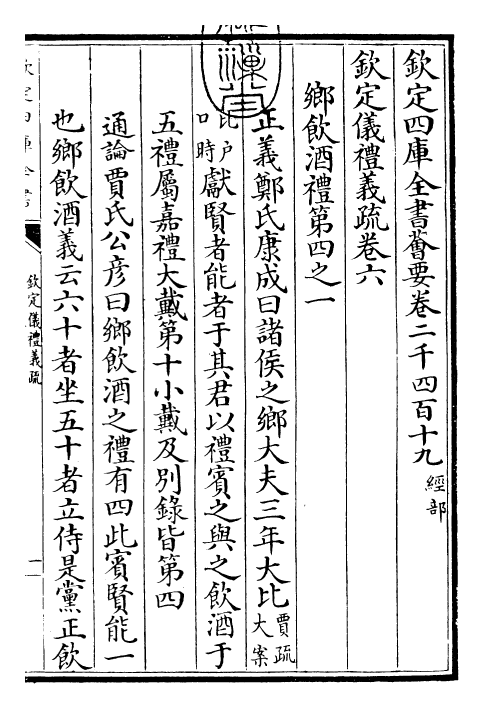 欽定四庫全書薈要卷二千四百十九 經部
欽定儀禮義疏卷六
鄉飲酒禮第四之一
正義鄭氏康成曰諸侯之鄉大夫三年大比賈疏大案
比戶口時獻賢者能者于其君以禮賓之與之飲酒于
五禮屬嘉禮大戴第十小戴及別錄皆第四
通論賈氏公彥曰鄉飲酒之禮有四此賓賢能一
也鄉飲酒義云六十者坐五十者立侍是黨正飲
欽定四庫全書
欽定儀禮義疏
一